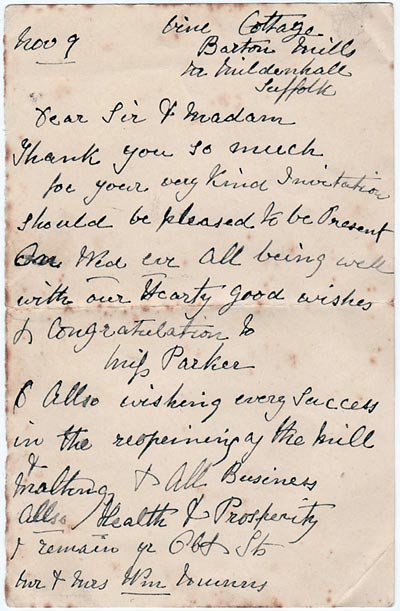 Nov 9
Vine Cottage
Barton Mills
Nr Mildenhall
Suffolk
Dear Sir & Madam
Thank you so much
for your very kind Invitation
should be pleased to be Present
on Wed eve all being well
with our Hearty good wishes
& Congratulation to
Miss Parker
& Allso wishing every Success
in the reopeining of the Mill
& Malting & All Business
Allso Health & Prosperity
I remain yr Obt St
Mr & Mrs Wm